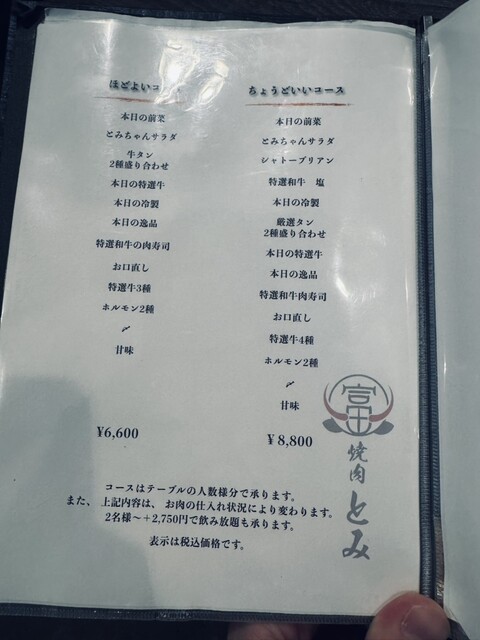 ほどよいコ
本日の前菜
とみちゃんサラダ
牛タン
2種盛り合わせ
本日の特選牛
本日の冷製
本日の逸品
特選和牛の肉寿司
お口直し
特選牛3種
ホルモン2種
〆
甘味
¥6,600
ちょうどいいコース
本日の前菜
とみちゃんサラダ
シャトーブリアン
特選和牛 塩
本日の冷製
厳選タン
2種盛り合わせ
本日の特選牛
本日の逸品
特選和牛肉寿司
お口直し
特選牛4種
ホルモン2種
〆
甘味
¥8,800
コースはテーブルの人数様分で承ります。
また、上記内容は、お肉の仕入れ状況により変わります。
2名様〜+2,750円で飲み放題も承ります。
表示は税込価格です。
富
焼肉とみ